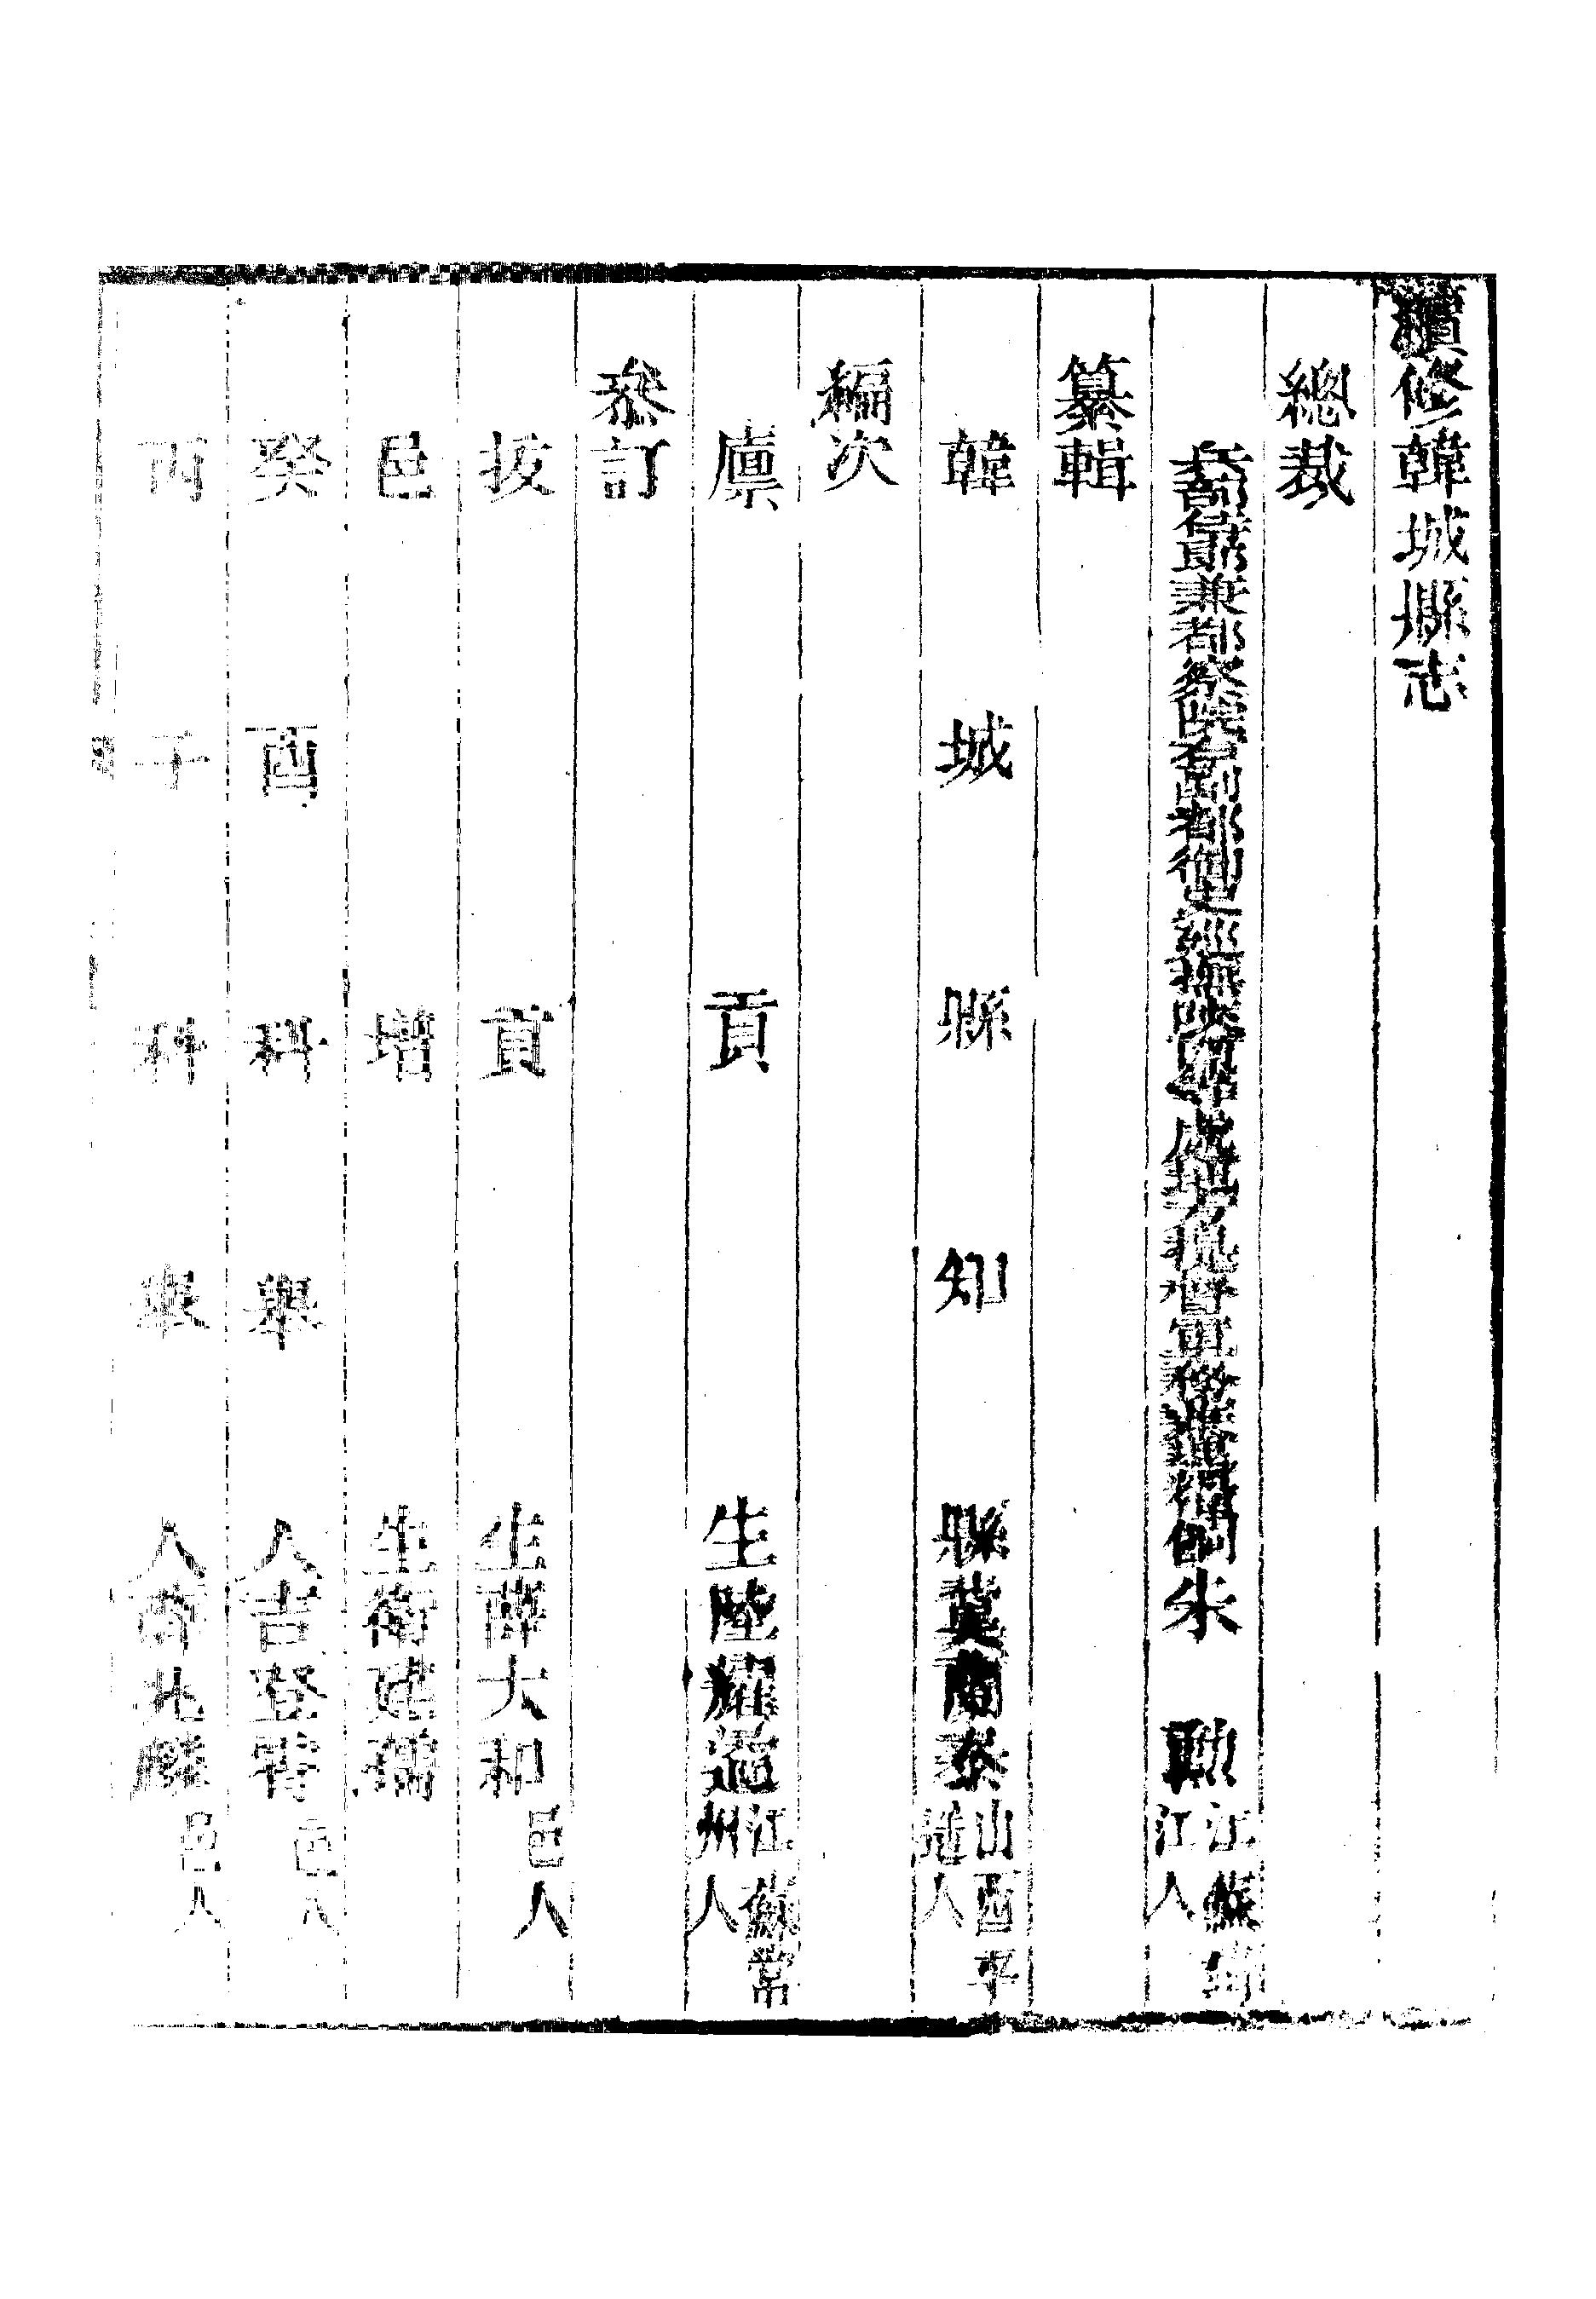 續修韓城縣志
總裁
兵部侍郎兼都察院右副都御史巡撫陝西等處地方兼督軍務兼理糧餉朱勳江蘇靖江人
纂輯
韓城縣知縣冀蘭泰山西平遙人
編次
廩貢生陸耀遹江蘇常州人
叅訂
拔貢生薛大和邑人
邑增生衛建
癸酉科舉人吉登 邑人
丙子科舉人薛兆麟邑人